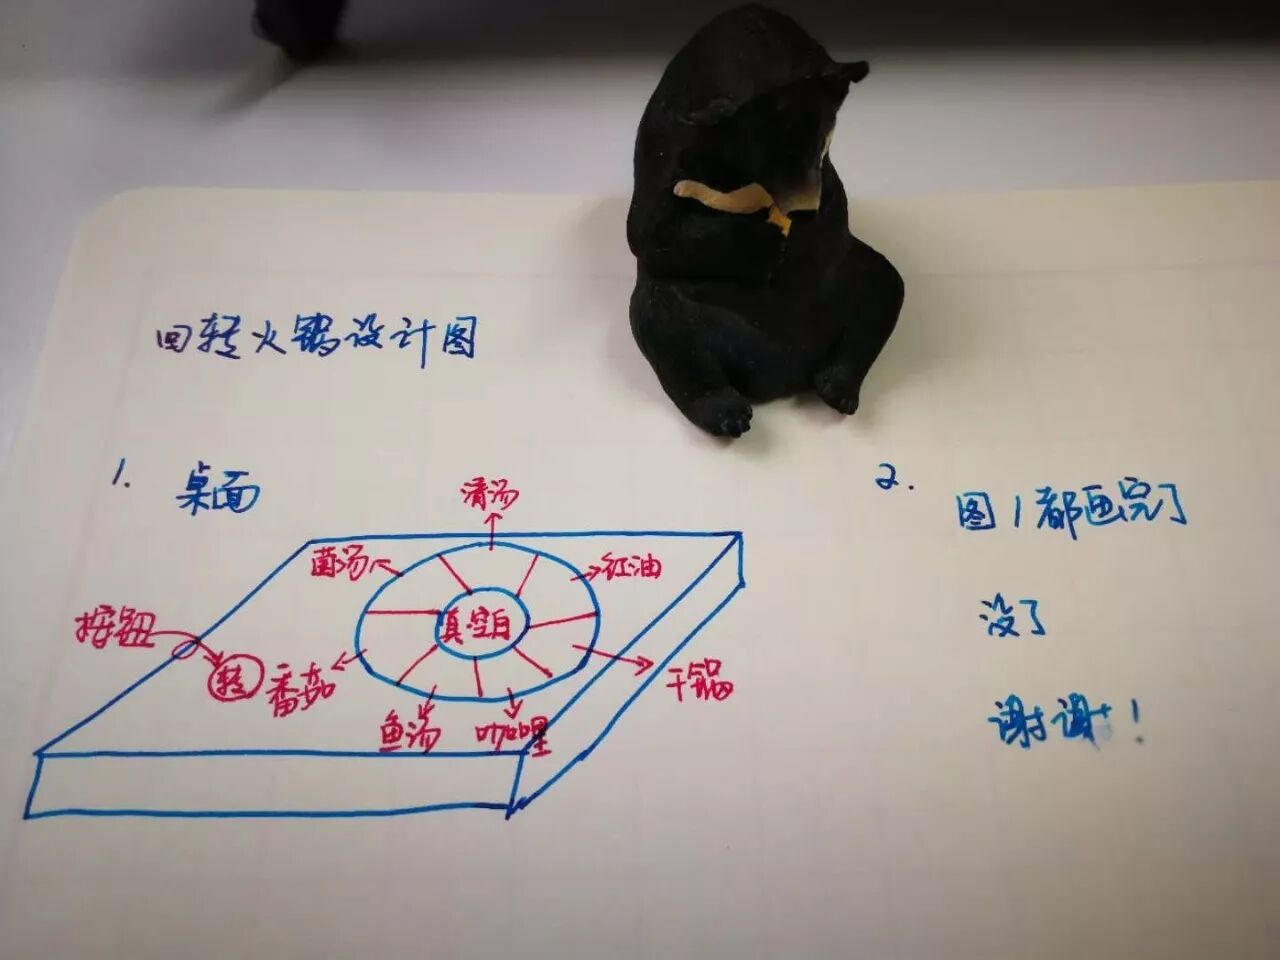 回转火锅设计图
1. 桌面
清汤
菌汤
红油
按钮
真空白
转
番茄
干锅
鱼汤
咖喱
2.
图1都画完了
没了
谢谢！